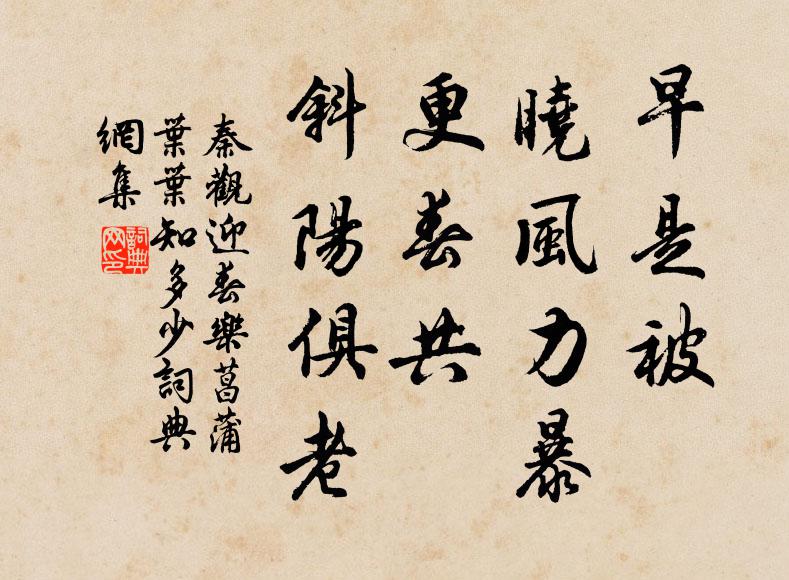 早是被
曉風力暴
更春共
斜陽俱老
秦觀迎春樂菖蒲
葉葉知多少詞典
網集
詞典網印